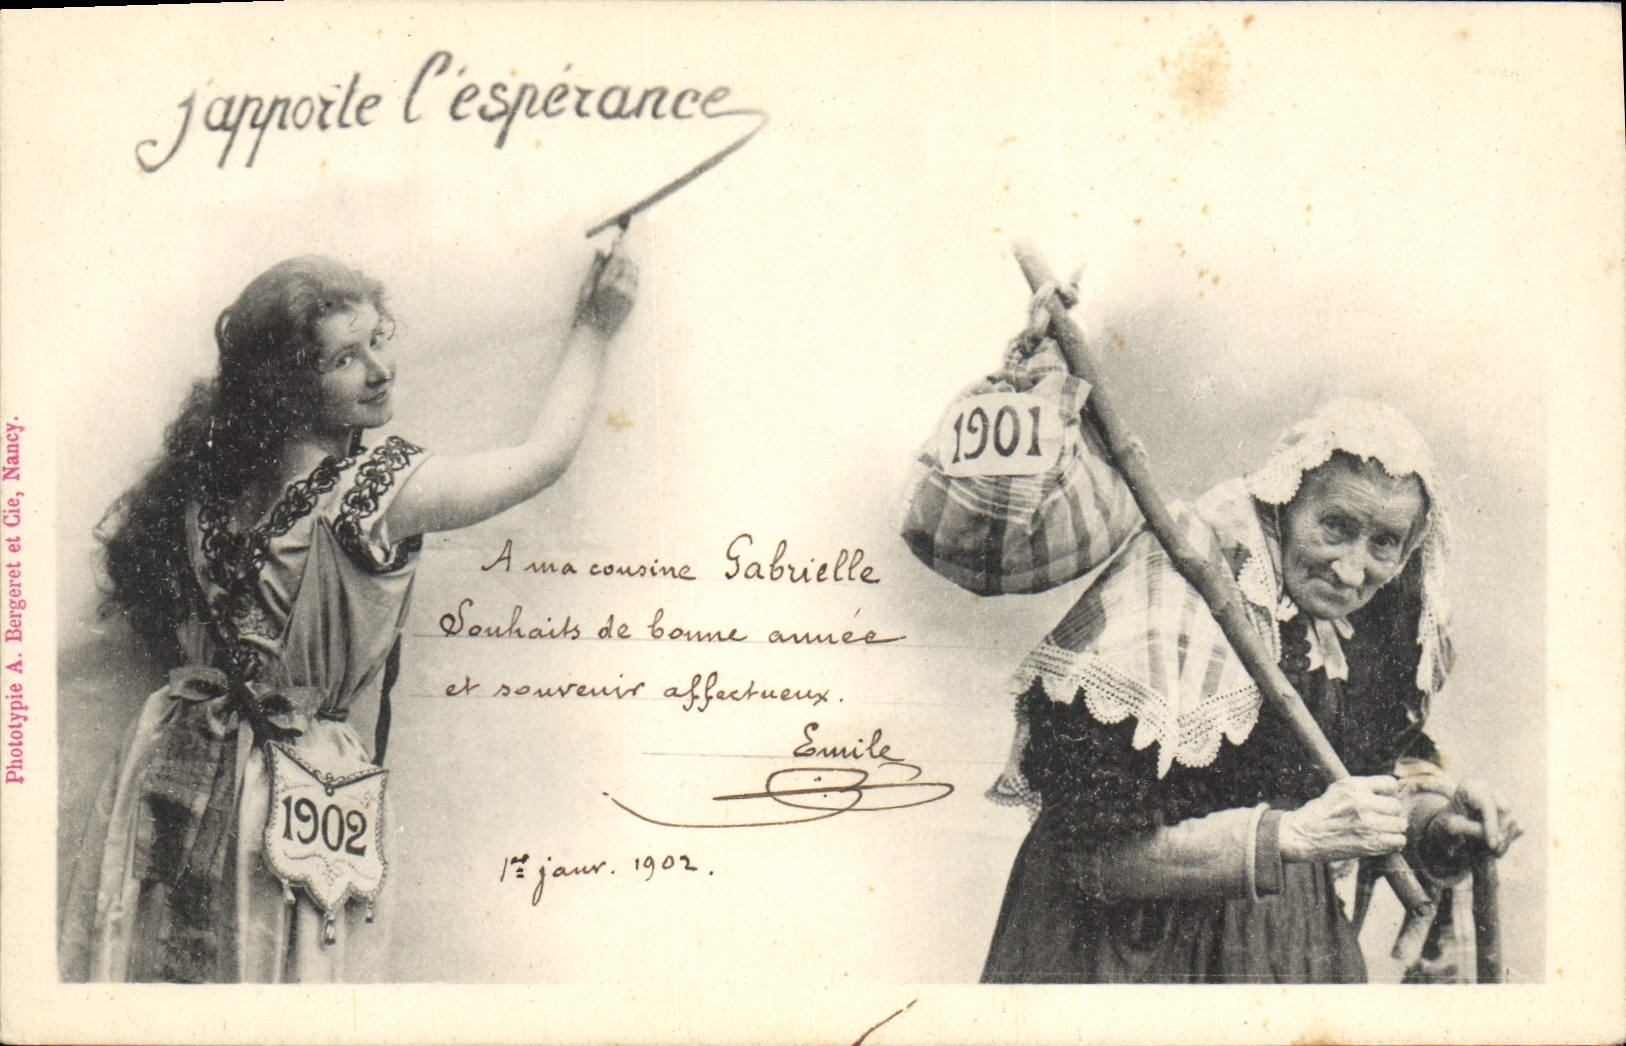 j'apporte l'éspérance
1901
A ma cousine Gabrielle
Souhaits de bonne année
et souvenir affectueux.
Emile
1902
1er janv. 1902.
Phototypie A. Bergeret et Cie, Nancy.